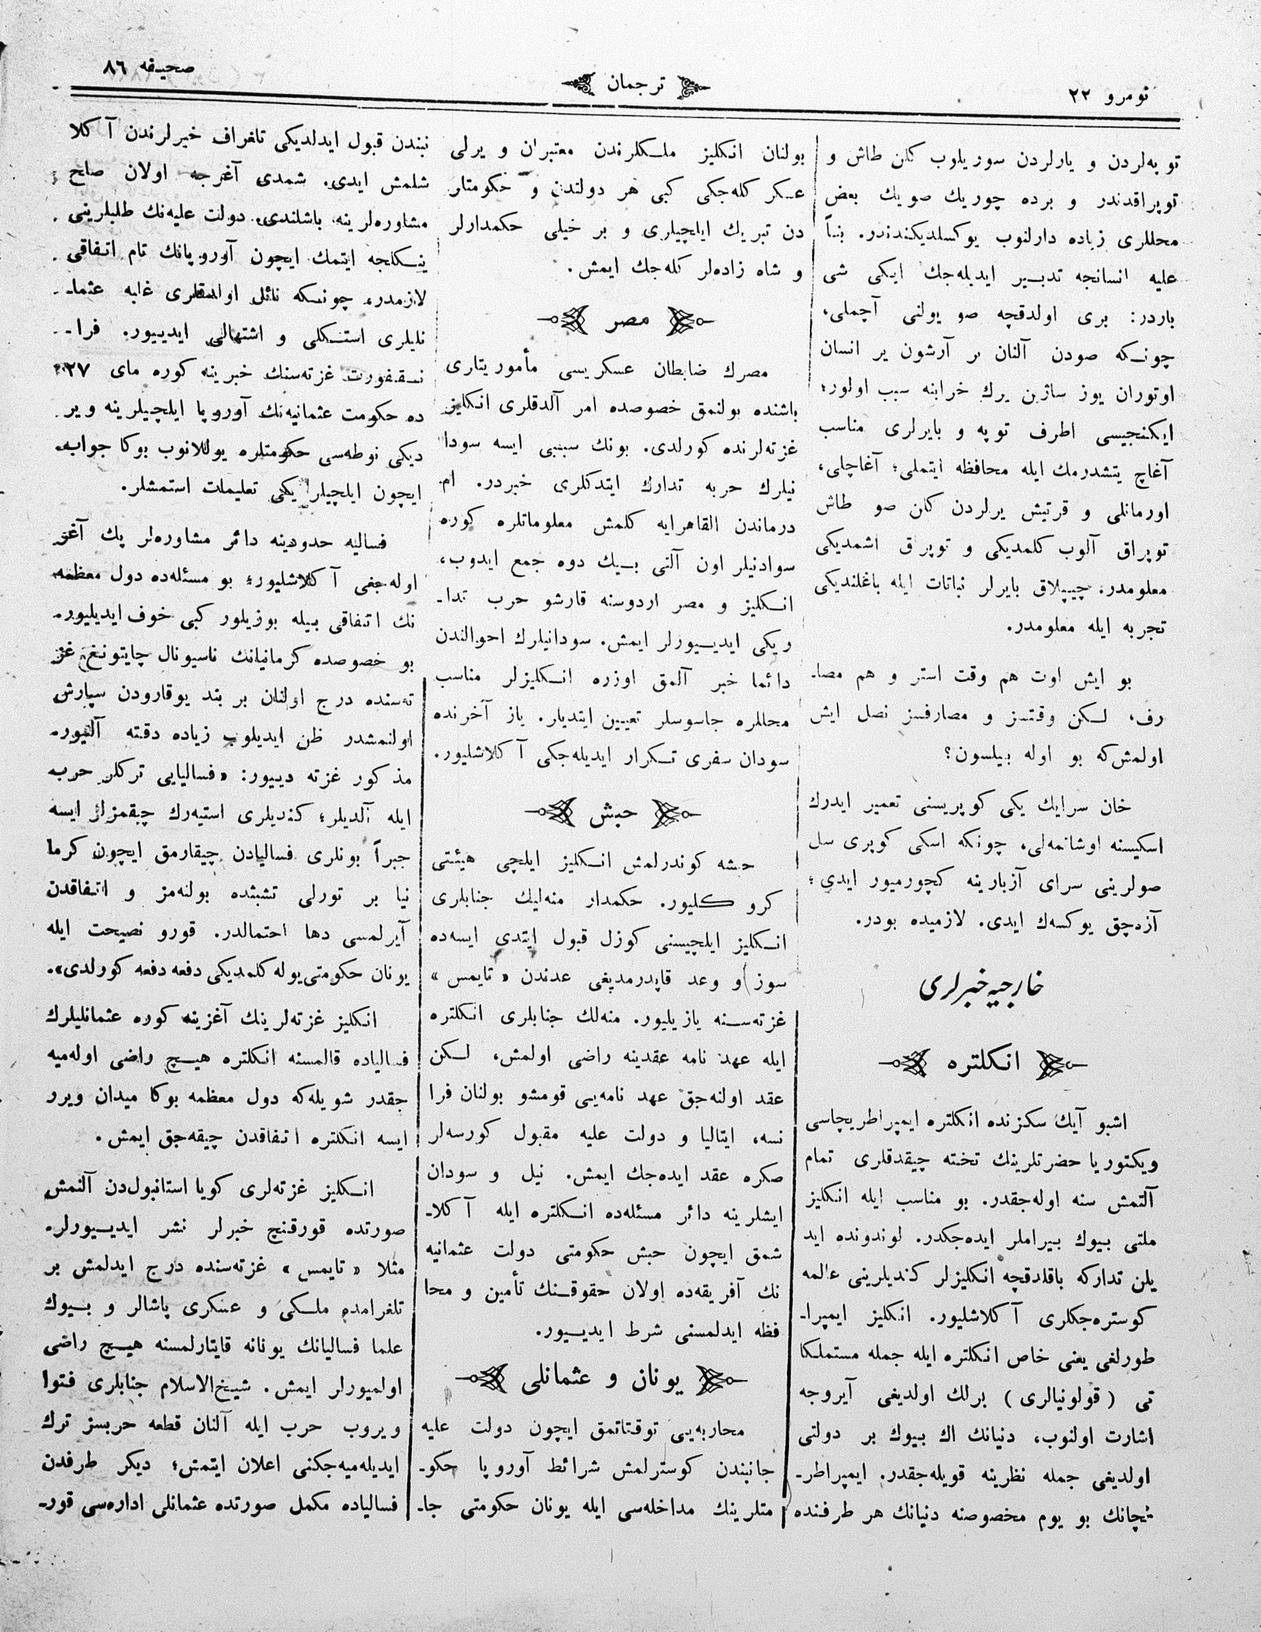 نومرو ٢٢
ترجمان
صحیفه ٨٦
توبه‌لردن و یارلردن سوریلوب کلن طاش و
توپراقدندر و برده چوریك صویك بعض
محللری زیاده دارلنوب یوکسلدیکندندر. بنأ
علیه انسانجه تدبیر ایدیله‌جك ایکی شی
باردر: بری اولدقچه صو یولنی آچملی،
چونکه صودن آلنان بر آرشون یر انسان
اوتوران یوز ساژین یرك خرابنه سبب اولور؛
ایکنجیسی اطرف توپه و بایرلری مناسب
آغاچ یتشدرمك ایله محافظه ایتملی؛ آغاچلی،
اورمانلی و قرتیش یرلردن کلن صو طاش
توپراق آلوب کلمدیکی و توپرق اشمدیکی
معلومدر. چیپلاق بایرلر نباتات ایله باغلندیکی
تجربه ایله معلومدر.
بو ایش اوت هم وقت استر و هم مصا-
رف، لکن وقتسز و مصارفسز نصل ایش
اولمش‌که بو اوله بیلسون؟
خان سرایك یکی کوپریسنی تعمیر ایدرك
اسکیسنه اوشاتمه‌لی. چونکه اسکی کوپری سل
صولرینی سرای آزبارینه کچورمیور ایدی؛
آزه‌جق یوکسه‌ك ایدی. لازمیده بودر.
خارجیه خبرلری
انکلتره
اشبو آیك سکزنده انکلتره ایمپراطریچاسی
ویکتوریا حضرتلرینك تخته چیقدقلری تمام
آلتمش سنه اوله‌جقدر. بو مناسب ایله انکلیز
ملتی بیوك بیراملر ایده‌جکدر. لوندونده اید
یلن تدارکه باقلدقچه انکلیزلر کندیلرینی عالمه
کوستره‌جکلری آکلاشلیور. انکلیز ایمپرا-
طورلغی یعنی خاص انکلتره ایله جمله مستملکا
تی (قولونیالری) برلك اولدیغی آیروجه
اشارت اولنوب، دنیانك اك بیوك بر دولتی
اولدیغی جمله نظرینه قویله‌جقدر. ایمپراطر-
یچانك بو یوم مخصوصنه دنیانك هر طرفنده
بولنان انکلیز ملکلرندن معتبران و یرلی
عسکر کله‌جکی کبی هر دولتدن و حکومتلر
دن تبریك ایلچیلری و بر خیلی حکمدارلر
و شاه زاده‌لر کله‌جك ایمش.
مصر
مصرك ضابطان عسکریسی مأموریتلری
باشنده بولنمق خصوصده امر آلدقلری انکلیز
غزته‌لرنده کورلدی. بونك سببی ایسه سودا
نیلرك حربه تدارك ایتدکلری خبردر. ام
درماندن القاهرایه کلمش معلوماتلره کوره
سوادنیلر اون آلتی بیك دوه جمع ایدوب،
انکلیز و مصر اردوسنه قارشو حرب تدا-
ریکی ایدییورلر ایمش. سودانیلرك احوالندن
دائما خبر آلمق اوزره انکلیزلر مناسب
محللره جاسوسلر تعیین ایتدیلر. یاز آخرنده
سودان سفری تکرار ایدیله‌جکی آکلاشلیور.
حبش
حبشه کوندرلمش انکلیز ایلچی هیئتی
کرو کلیور. حکمدار منه‌لیك جنابلری
انکلیز ایلچیسنی کوزل قبول ایتدی ایسه‌ده
سوز و وعد قاپدرمدیغی عدندن «تایمس»
غزته‌سنه یازیلیور. منه‌لك جنابلری انکلتره
ایله عهد نامه عقدینه راضی اولمش، لکن
عقد اولنه‌جق عهد نامه‌یی قومشو بولنان فرا
نسه، ایتالیا و دولت علیه مقبول کورسه‌لر
صکره عقد ایده‌جك ایمش. نیل و سودان
ایشلرینه دائر مسئله‌ده انکلتره ایله آکلا-
شمق ایچون حبش حکومتی دولت عثمانیه
نك آفریقه‌ده اولان حقوقنك تأمین و محا
فظه ایدلمسنی شرط ایدییور.
یونان و عثمانلی
محاربه‌یی توقتاتمق ایچون دولت علیه
جانبندن کوسترلمش شرائط آوروپا حکو-
متلرینك مداخله‌سی ایله یونان حکومتی جا-
نبندن قبول ایدلدیکی تلغراف خبرلرندن آکلا
شلمش ایدی. شمدی آغرجه اولان صلح
مشاوره‌لرینه باشلندی. دولت علیه‌نك طلبلرینی
یتکلجه ایتمك ایچون آوروپانك تام اتفاقی
لازمدر. چونکه نائل اولدقلری غلبه عثما-
نلیلری استکلی و اشتهالی ایدییور. فرا-
نسقفورت غزته‌سنك خبرینه کوره مای ٢٧
ده حکومت عثمانیه‌نك آوروپا ایلچیلرینه ویر
دیکی نوطه‌سی حکومتلره یوللانوب بوکا جواب
ایچون ایلچیلر یکی تعلیمات استمشلر.
فسالیه حدودینه دائر مشاوره‌لر پك آغر
اوله‌جغی آکلاشلیور؛ بو مسئله‌ده دول معظمه
نك اتفاقی بیله بوزیلور کبی خوف ایدیلیور.
بو خصوصده کرمانیانك ناسیونال چایتونغ غز
ته‌سنده درج اولنان بر بند یوقارودن سپارش
اولنمشدر ظن ایدیلوب زیاده دقته آلنیور.
مذکور غزته دییور: «فسالیایی ترکلر حرب
ایله آلدیلر؛ کندیلری استیه‌رك چیقمزلر ایسه
جبراً بونلری فسالیادن چیقارمق ایچون کرما
نیا بر تورلی تشبثده بولنه‌مز و اتفاقدن
آیرلمسی دها احتمالدر. قورو نصیحت ایله
یونان حکومتی یوله کلمدیکی دفعه دفعه کورلدی».
انکلیز غزته‌لرینك آغزینه کوره عثمانلیلرك
فسالیاده قالمسنه انکلتره هیچ راضی اوله‌میه
جقدر شویله‌که دول معظمه بوکا میدان ویرر
ایسه انکلتره اتفاقدن چیقه‌جق ایمش.
انکلیز غزته‌لری کویا استانبول‌دن آلنمش
صورتده قورقنچ خبرلر نشر ایدییورلر.
مثلا «تایمس» غزته‌سنده درج ایدلمش بر
تلغرامده ملکی و عسکری پاشالر و بیوك
علما فسالیانك یونانه قایتارلمسنه هیچ راضی
اولمیورلر ایمش. شیخ‌الاسلام جنابلری فتوا
ویروب حرب ایله آلنان قطعه حربسز ترك
ایدیله‌میه‌جکنی اعلان ایتمش؛ دیکر طرفدن
فسالیاده مکمل صورتده عثمانلی اداره‌سی قور-